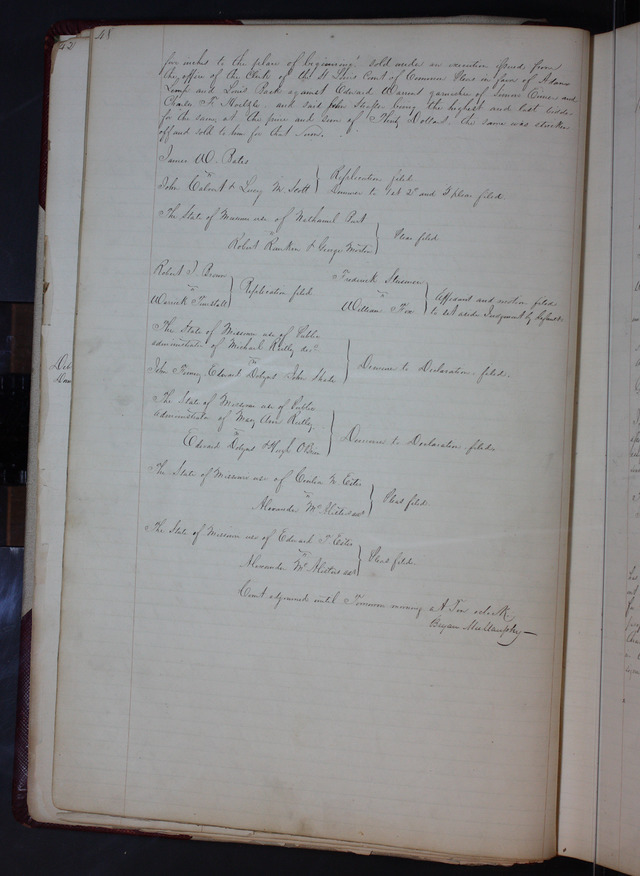 48
five inches to the place of beginning; sold under an execution issued from
the office of the Clerk of the St Louis Court of Common Pleas in favor of Adam
Lemp and Louis Bach against Edward Warrent garnishee of and
Charles F. and said John being the highest and last bidder
for the same, at the price and sum of Thirty Dollars the same was stricken
off and sold to him for that sum.
James W. Bates
vs
John Calvert & Lucy M Scott
Replication filed
Demurrer to 1st 2d and 3d pleas filed.
The State of Missouri use of Nathaniel Past
vs
Robert Rankin & George Morton
Pleas filed
Robert J. Brown
vs
Warrick Tunstall
Replication filed.
Frederick
vs
William Fox
Affidavit and motion filed
to set aside Judgment by default.
The State of Missouri use of Public
administrator of Michael Reilly decd
vs
John Finney Edward Dobyns John Shade
Demurrer to Declaration filed.
The State of Missouri use of Public
administrator of Mary Ann Reilly.
vs
Edward Dobyns & Hugh O'Brien
Demurrer to Declaration filed.
The State of Missouri use of N. Estes
vs
Alexander McAlister
Pleas filed.
The State of Missouri use of Edward T. Estes
vs
Alexander McAlister
Pleas filed.
Court adjourned until Tomorrow morning at Ten oclock
Bryan Mullanphy